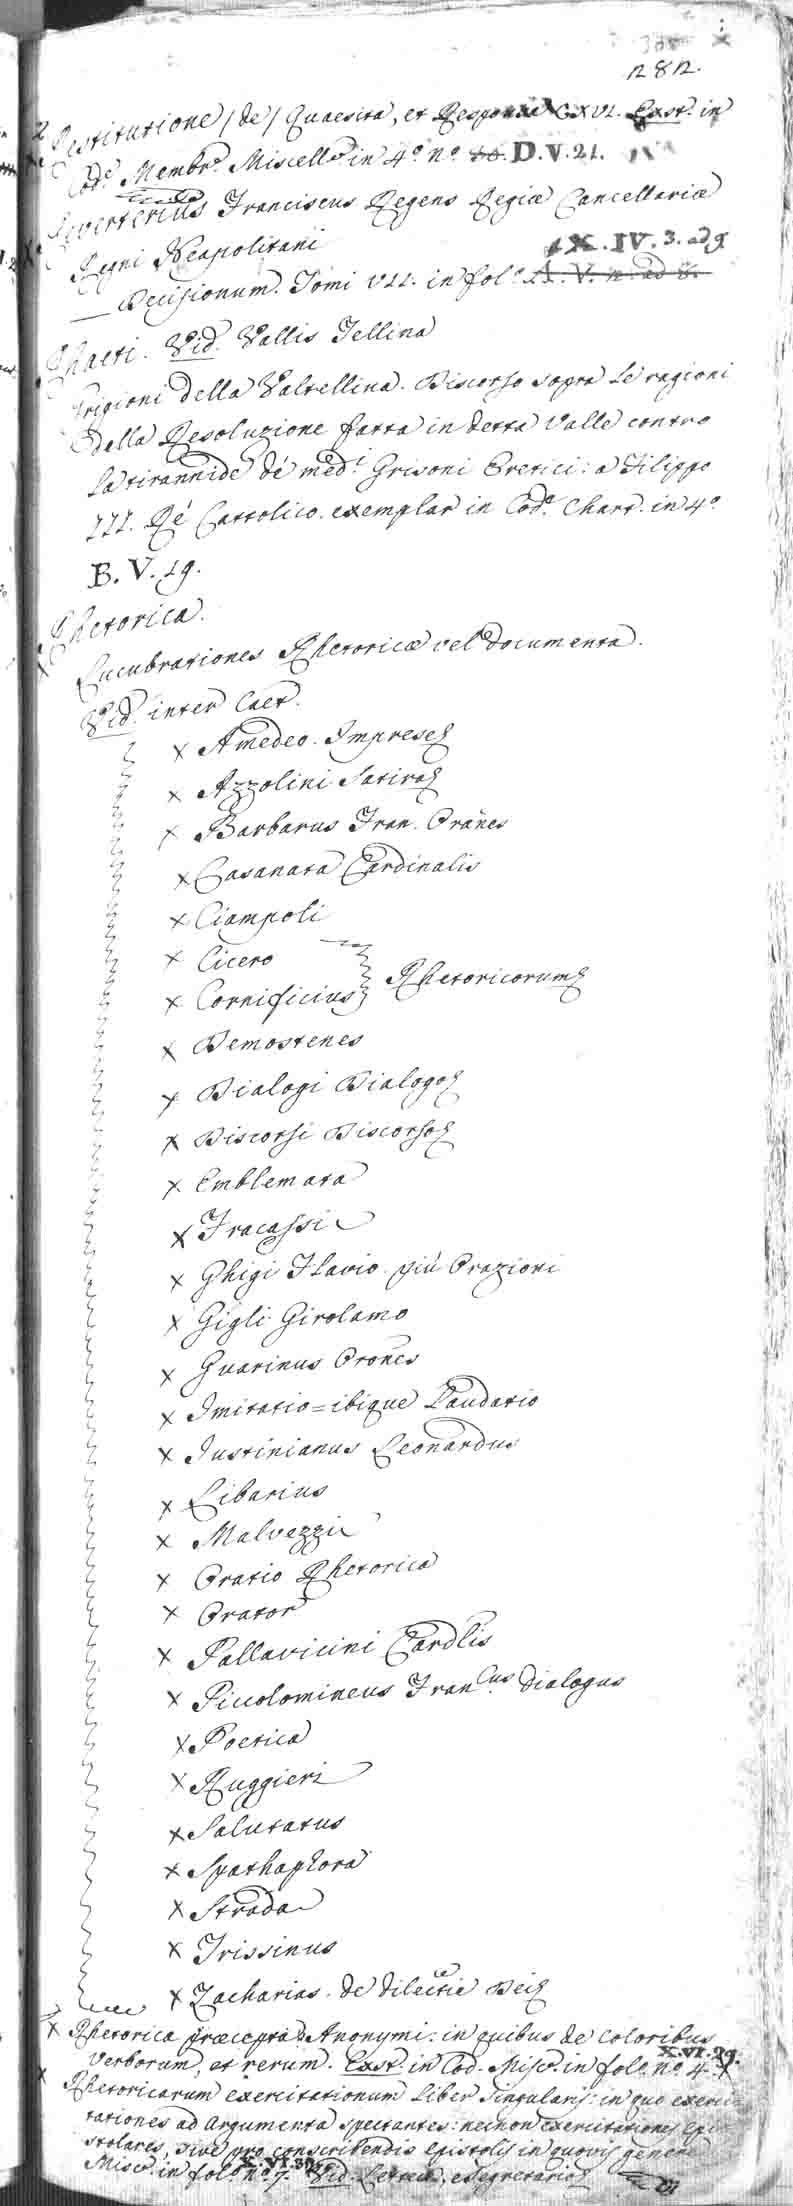 282.
Restitutione /de/ Quaesita, et Responsa CXVI. Exst. in
Cod.e Membr.o Miscell.o in 4.o n.o D.V.21.
Reverterius Franciscus Regens Regiæ Cancellariæ
Regni Neapolitani
X.IV.3. ad 9
Decisionum. Tomi VII. in fol.o A.V. n. ad 8.
Rhaeti. Vid. Vallis Tellina
Grigioni della Valtellina. Discorso sopra le ragioni
della Resoluzione fatta in detta Valle contro
la tirannide de' med.i Grisoni Eretici: a Filippo
III. Ré Cattolico. exemplar in Cod.e Chart. in 4.o
B.V.19.
Rhetorica.
Lucubrationes Rhetoricæ vel documenta.
Vid. inter Caet.
x Amedeo. Imprese
x Azzolini Satira
x Barbarus Fran. Orãnes
x Casanata Cardinalis
x Ciampoli
x Cicero
x Cornificius } Rhetoricorum
x Demostenes
x Dialogi Dialogo
x Discorsi Discorso
x Emblemata
x Fracassi
x Ghigi Flavio più Orazioni
x Gigli Girolamo
x Guarinus Orõnes
x Imitatio = ibique Laudatio
x Justinianus Leonardus
x Libarius
x Malvezzi
x Oratio Rhetorica
x Orator
x Pallavicini Cardlis
x Piccolomineus Fran.cus Dialogus
x Poetica
x Ruggieri
x Salutatus
x Spathaphora
x Strada
x Trissinus
x Zacharias. de dilectie Dei
x Rhetorica præcepta Anonymi: in quibus de Coloribus
X.VI.29.
Verborum, et rerum. Exst. in Cod. Misc. in fol.o n.o 4.
x Rhetoricarum exercitationum Liber Singularis: in quo exerci
tationes ad Argumenta spectantes: necnon exercitationes Epi
stolares, sive pro conscribendis Epistolis in quovis genere
Misc. in fol.o n.o 7. Vid. Lettere, e Segretario